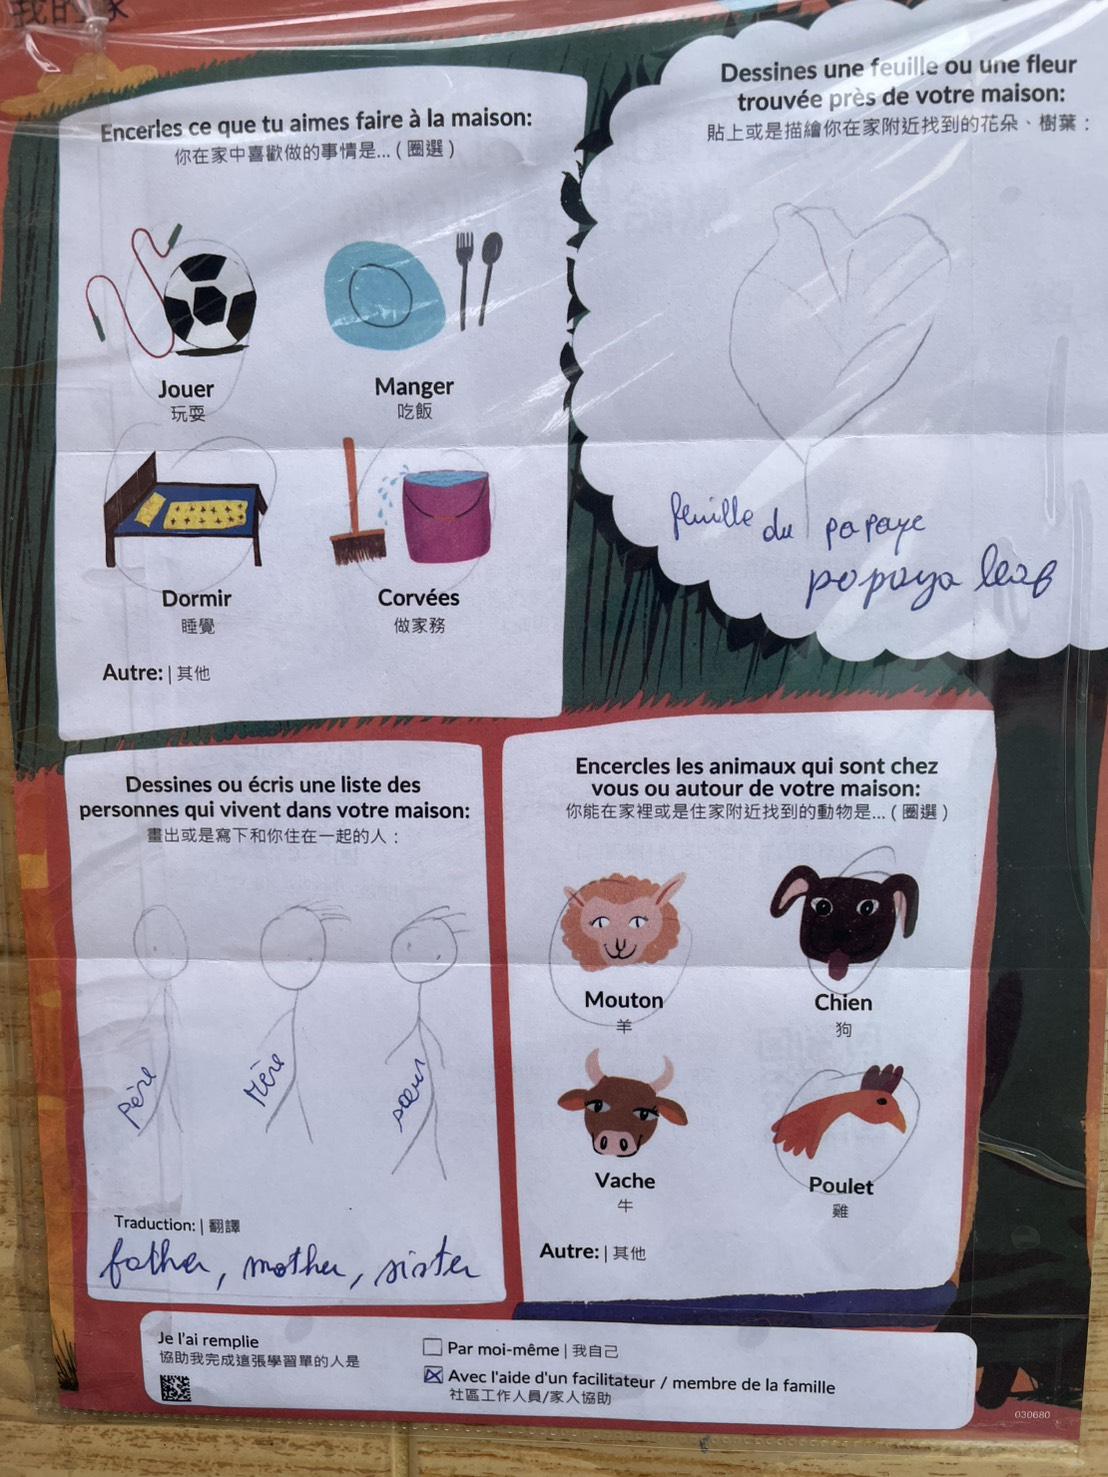 我的家
Encerles ce que tu aimes faire à la maison:
你在家中喜歡做的事情是...（圈選）
Jouer
玩耍
Manger
吃飯
Dormir
睡覺
Corvées
做家務
Autre: | 其他
Dessines une feuille ou une fleur
trouvée près de votre maison:
貼上或是描繪你在家附近找到的花朵、樹葉：
feuille du papaye
papaya leaf
Dessines ou écris une liste des
personnes qui vivent dans votre maison:
畫出或是寫下和你住在一起的人：
Père
Mère
sœur
Traduction: | 翻譯
father, mother, sister
Encercles les animaux qui sont chez
vous ou autour de votre maison:
你能在家裡或是住家附近找到的動物是...（圈選）
Mouton
羊
Chien
狗
Vache
牛
Poulet
雞
Autre: | 其他
Je l'ai remplie
協助我完成這張學習單的人是
Par moi-même | 我自己
Avec l'aide d'un facilitateur / membre de la famille
社區工作人員/家人協助
030680